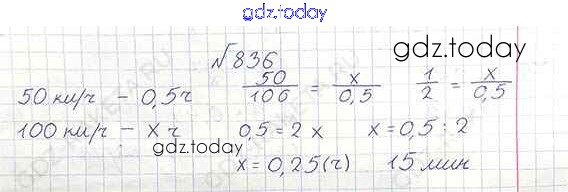 gdz.today
№836
gdz.today
50 км/ч – 0,5ч 50/106 = x/0,5 1/2 = x/0,5
100 км/ч – x ч 0,5=2 x x=0,5:2
gdz.today
x=0,25(ч) 15 мин